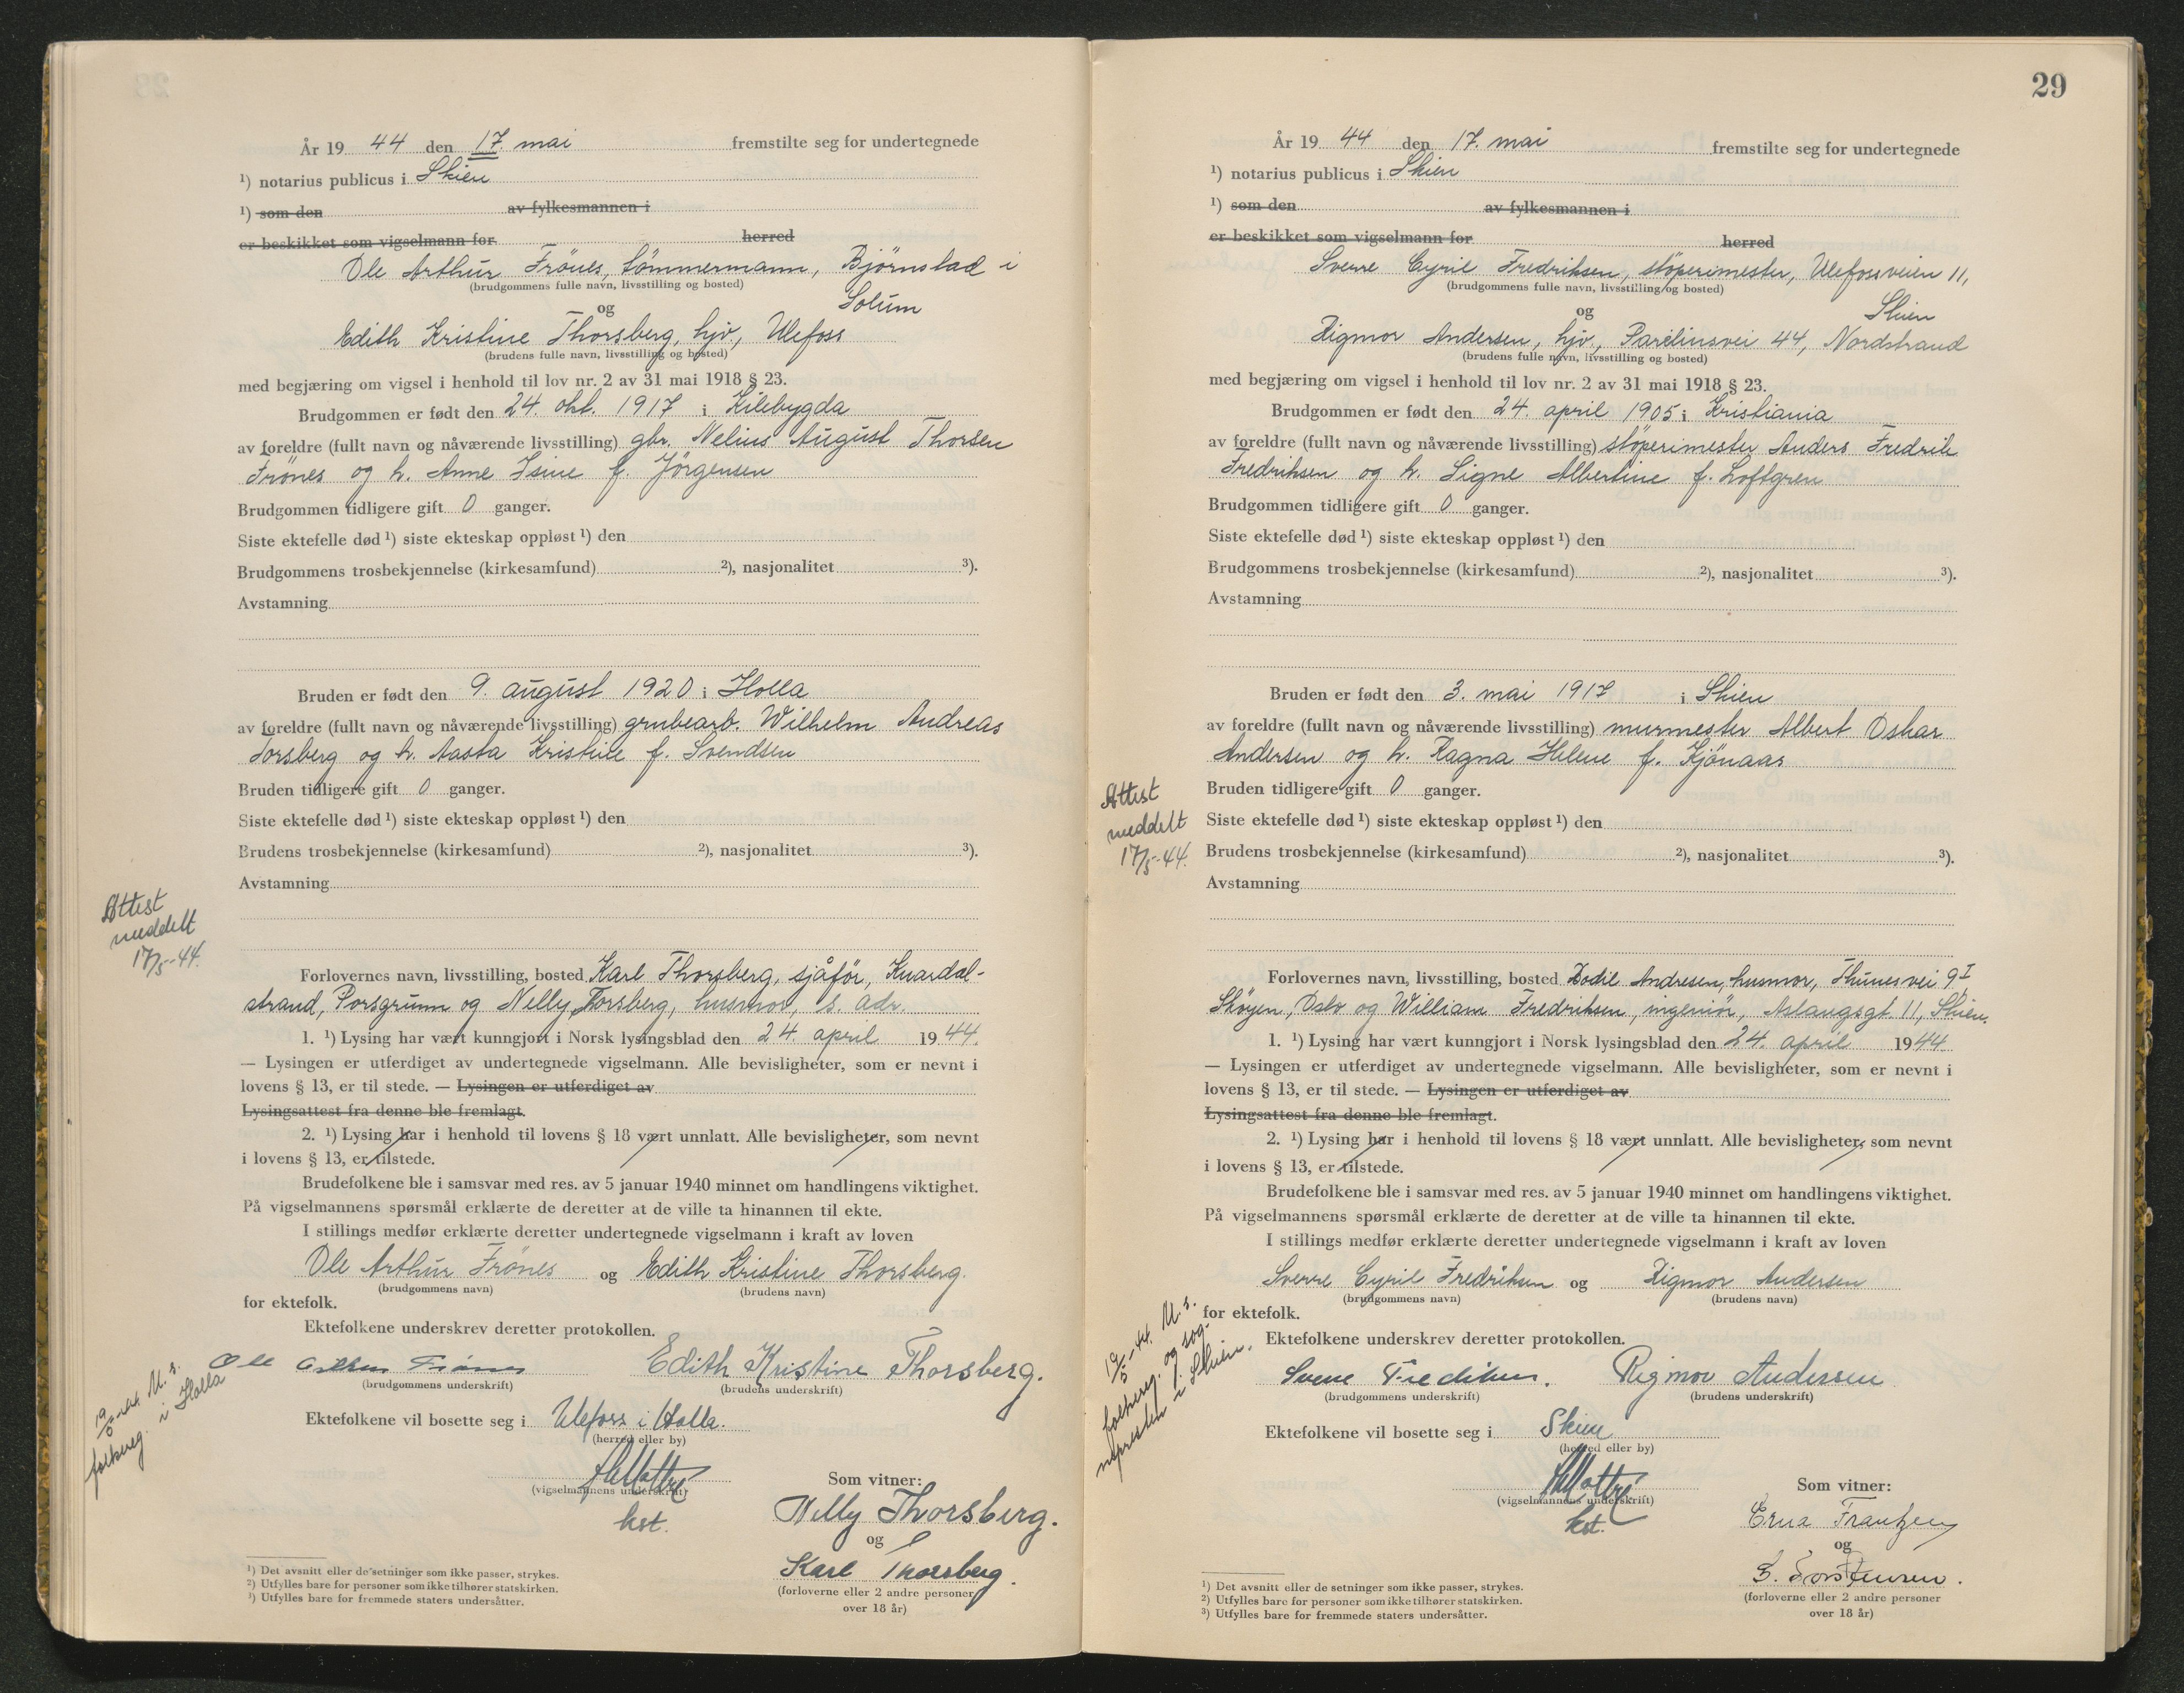 År 19 44 den 17. mai fremstilte seg for undertegnede
¹) notarius publicus i Skien
¹) som den av fylkesmannen i
er beskikket som vigselmann for herred
Ole Arthur Frönes, tömmermann, Björnstad i
(brudgommens fulle navn, livsstilling og bosted)
Solum
og
Edith Kristine Thorsberg, hjv., Ulefoss
(brudens fulle navn, livsstilling og bosted)
med begjæring om vigsel i henhold til lov nr. 2 av 31 mai 1918 § 23.
Brudgommen er født den 24. okt. 1917 i Kilebygda
av foreldre (fullt navn og nåværende livsstilling) gbr. Nelius August Thorsen
Frönes og h. Anne Isine f. Jörgensen
Brudgommen tidligere gift 0 ganger.
Siste ektefelle død ¹) siste ekteskap oppløst ¹) den
Brudgommens trosbekjennelse (kirkesamfund) ²), nasjonalitet ³).
Avstamning
Bruden er født den 9. august 1920 i Holla
av foreldre (fullt navn og nåværende livsstilling) grubearb. Wilhelm Andreas
Torsberg og h. Aasta Kristine f. Svendsen
Bruden tidligere gift 0 ganger.
Siste ektefelle død ¹) siste ekteskap oppløst ¹) den
Brudens trosbekjennelse (kirkesamfund) ²), nasjonalitet ³).
Avstamning
Attest
meddelt
17/5-44.
Forlovernes navn, livsstilling, bosted Karl Thorsberg, sjåför, Knardal-
strand, Porsgrunn og Nelly Torsberg, husmor, s. adr.
1. ¹) Lysing har vært kunngjort i Norsk lysingsblad den 24. april 1944.
— Lysingen er utferdiget av undertegnede vigselmann. Alle bevisligheter, som er nevnt i
lovens § 13, er til stede. — Lysingen er utferdiget av
Lysingsattest fra denne ble fremlagt.
2. ¹) Lysing har i henhold til lovens § 18 vært unnlatt. Alle bevisligheter, som nevnt
i lovens § 13, er tilstede.
Brudefolkene ble i samsvar med res. av 5 januar 1940 minnet om handlingens viktighet.
På vigselmannens spørsmål erklærte de deretter at de ville ta hinannen til ekte.
I stillings medfør erklærte deretter undertegnede vigselmann i kraft av loven
Ole Arthur Frönes og Edith Kristine Thorsberg.
(brudgommens navn) (brudens navn)
for ektefolk.
Ektefolkene underskrev deretter protokollen.
Ole Arthur Frönes Edith Kristine Thorsberg.
(brudgommens underskrift) (brudens underskrift)
19/5-44. M. s.
folkereg. i Holla
Ektefolkene vil bosette seg i Ulefoss i Holla.
(herred eller by)
(vigselmannens underskrift)
kst.
Som vitner:
Nelly Thorsberg.
og
Karl Thorsberg.
(forloverne eller 2 andre personer
over 18 år)
¹) Det avsnitt eller de setninger som ikke passer, strykes.
²) Utfylles bare for personer som ikke tilhører statskirken.
³) Utfylles bare for fremmede staters undersåtter.
29
År 19 44 den 17. mai fremstilte seg for undertegnede
¹) notarius publicus i Skien
¹) som den av fylkesmannen i
er beskikket som vigselmann for herred
Sverre Cyril Fredriksen, stöperimester, Ulefossveien 11,
(brudgommens fulle navn, livsstilling og bosted)
Skien
og
Rigmor Andersen, hjv., Parelinsvei 44, Nordstrand
(brudens fulle navn, livsstilling og bosted)
med begjæring om vigsel i henhold til lov nr. 2 av 31 mai 1918 § 23.
Brudgommen er født den 24. april 1905 i Kristiania
av foreldre (fullt navn og nåværende livsstilling) stöperimester Anders Fredrik
Fredriksen og h. Signe Albertine f. Loftgren
Brudgommen tidligere gift 0 ganger.
Siste ektefelle død ¹) siste ekteskap oppløst ¹) den
Brudgommens trosbekjennelse (kirkesamfund) ²), nasjonalitet ³).
Avstamning
Bruden er født den 3. mai 1917 i Skien
av foreldre (fullt navn og nåværende livsstilling) murmester Albert Oskar
Andersen og h. Ragna Helene f. Kjönaas
Attest
meddelt
17/5-44.
Bruden tidligere gift 0 ganger.
Siste ektefelle død ¹) siste ekteskap oppløst ¹) den
Brudens trosbekjennelse (kirkesamfund) ²), nasjonalitet ³).
Avstamning
Forlovernes navn, livsstilling, bosted Bodil Andresen, husmor, Thunesvei 9 I
Skøyen, Oslo og William Fredriksen, ingeniör, Aslaugsgt. 11, Skien.
1. ¹) Lysing har vært kunngjort i Norsk lysingsblad den 24. april 1944.
— Lysingen er utferdiget av undertegnede vigselmann. Alle bevisligheter, som er nevnt i
lovens § 13, er til stede. — Lysingen er utferdiget av
Lysingsattest fra denne ble fremlagt.
2. ¹) Lysing har i henhold til lovens § 18 vært unnlatt. Alle bevisligheter, som nevnt
i lovens § 13, er tilstede.
Brudefolkene ble i samsvar med res. av 5 januar 1940 minnet om handlingens viktighet.
På vigselmannens spørsmål erklærte de deretter at de ville ta hinannen til ekte.
I stillings medfør erklærte deretter undertegnede vigselmann i kraft av loven
Sverre Cyril Fredriksen og Rigmor Andersen
(brudgommens navn) (brudens navn)
for ektefolk.
Ektefolkene underskrev deretter protokollen.
Sverre Fredriksen. Rigmor Andersen
(brudgommens underskrift) (brudens underskrift)
19/5-44. M. s.
folkereg. og sog-
nepresten i Skien.
Ektefolkene vil bosette seg i Skien
(herred eller by)
(vigselmannens underskrift)
kst.
Som vitner:
Erna Frantzen
og
(forloverne eller 2 andre personer
over 18 år)
¹) Det avsnitt eller de setninger som ikke passer, strykes.
²) Utfylles bare for personer som ikke tilhører statskirken.
³) Utfylles bare for fremmede staters undersåtter.